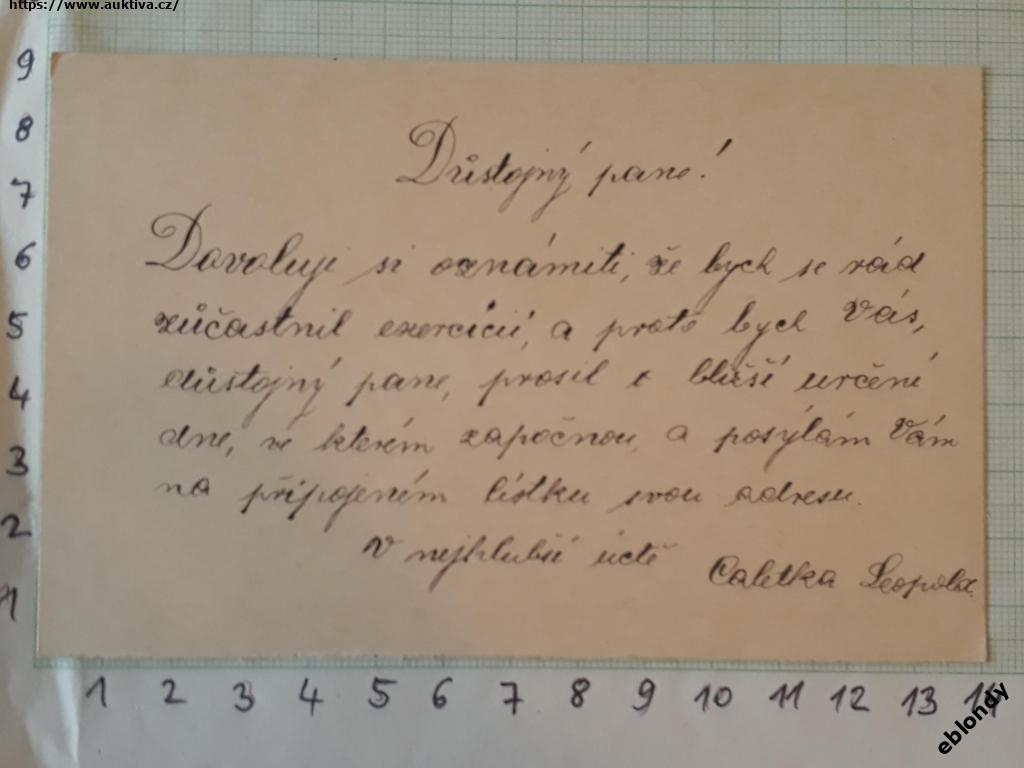 https://www.auktiva.cz/
Důstojný pane!
Dovoluji si oznámiti, že bych se rád
zúčastnil exercicií, a proto bych Vás,
důstojný pane, prosil o bližší určení
dne, ve kterém započnou, a posýlám Vám
na připojeném lístku svou adresu.
V nejhlubší úctě
Caletka Leopold.
9
8
7
6
5
4
3
2
1
1 2 3 4 5 6 7 8 9 10 11 12 13 14
eblondy